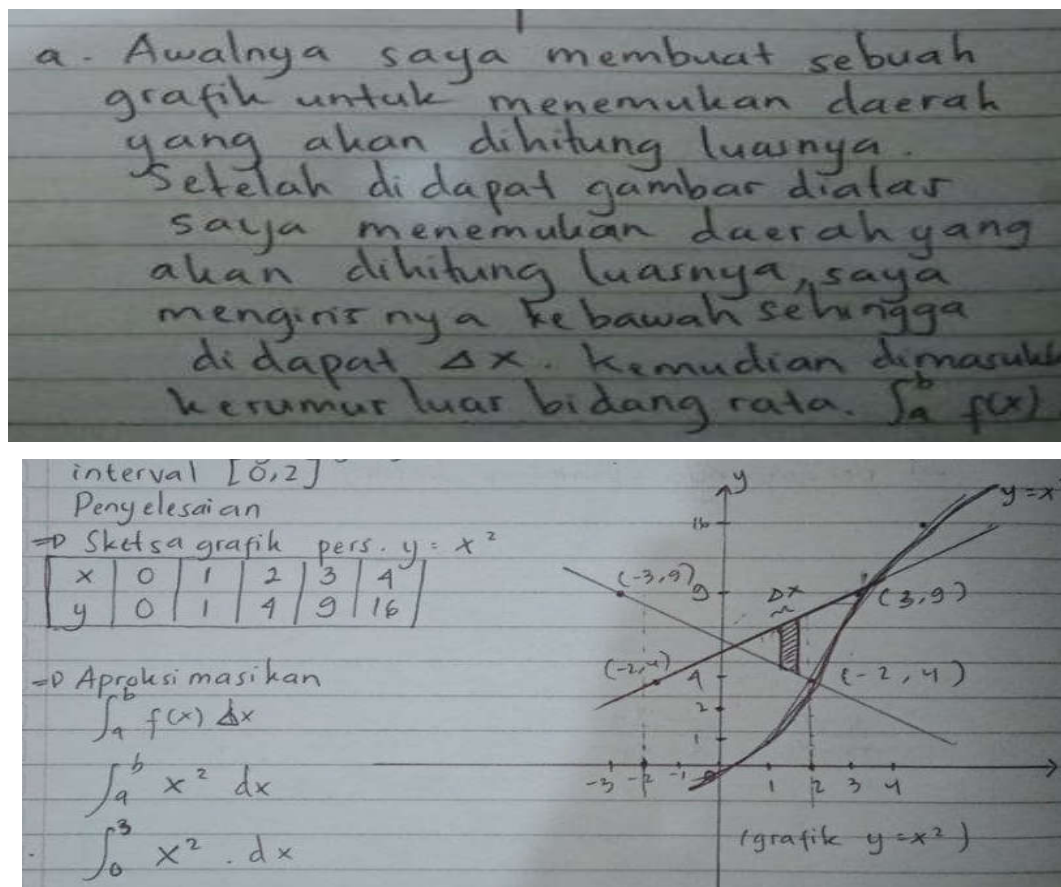 a. Awalnya saya membuat sebuah
grafik untuk menemukan daerah
yang akan dihitung luasnya.
Setelah didapat gambar diatas
saya menemukan daerah yang
akan dihitung luasnya, saya
mengirisnya kebawah sehingga
didapat Δx. Kemudian dimasukk
kerumus luas bidang rata. ∫ₐᵇ f(x)
interval [0,2]
Penyelesaian
⇒ Sketsa grafik pers. y = x²
x | 0 | 1 | 2 | 3 | 4
y | 0 | 1 | 4 | 9 | 16
⇒ Aproksimasikan
∫ₐᵇ f(x) dx
∫ₐᵇ x² dx
∫₀³ x² . dx
y
y = x
16
(-3,9)
9
Δx
(3,9)
(-2,4)
4
(-2,4)
2
1
-3 -2 -1 0 1 2 3 4
(grafik y = x²)